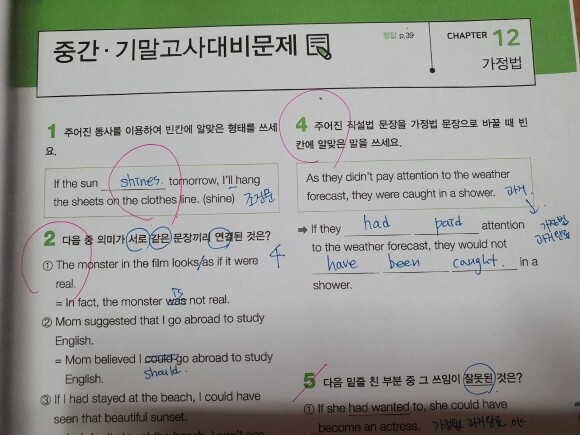 중간·기말고사대비문제
정답 p.39
CHAPTER 12
가정법
1 주어진 동사를 이용하여 빈칸에 알맞은 형태를 쓰세
요.
If the sun shines. tomorrow, I'll hang
the sheets on the clothes line. (shine) 조건문
2 다음 중 의미가 서로 같은 문장끼리 연결된 것은?
4
① The monster in the film looks as if it were
real.
is
= In fact, the monster was not real.
② Mom suggested that I go abroad to study
English.
= Mom believed I could go abroad to study
should
English.
③ If I had stayed at the beach, I could have
seen that beautiful sunset.
4 주어진 직설법 문장을 가정법 문장으로 바꿀 때 빈
칸에 알맞은 말을 쓰세요.
As they didn't pay attention to the weather
forecast, they were caught in a shower. 과거
➡ If they had paid attention
가정법
과거완료
to the weather forecast, they would not
have been caught. in a
shower.
5 다음 밑줄 친 부분 중 그 쓰임이 잘못된 것은?
① If she had wanted to, she could have
become an actress. 가정법 과거완료